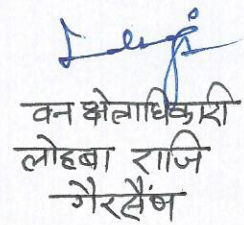 वन क्षेत्राधिकारी
लोहबा राजि
गैरसैंण